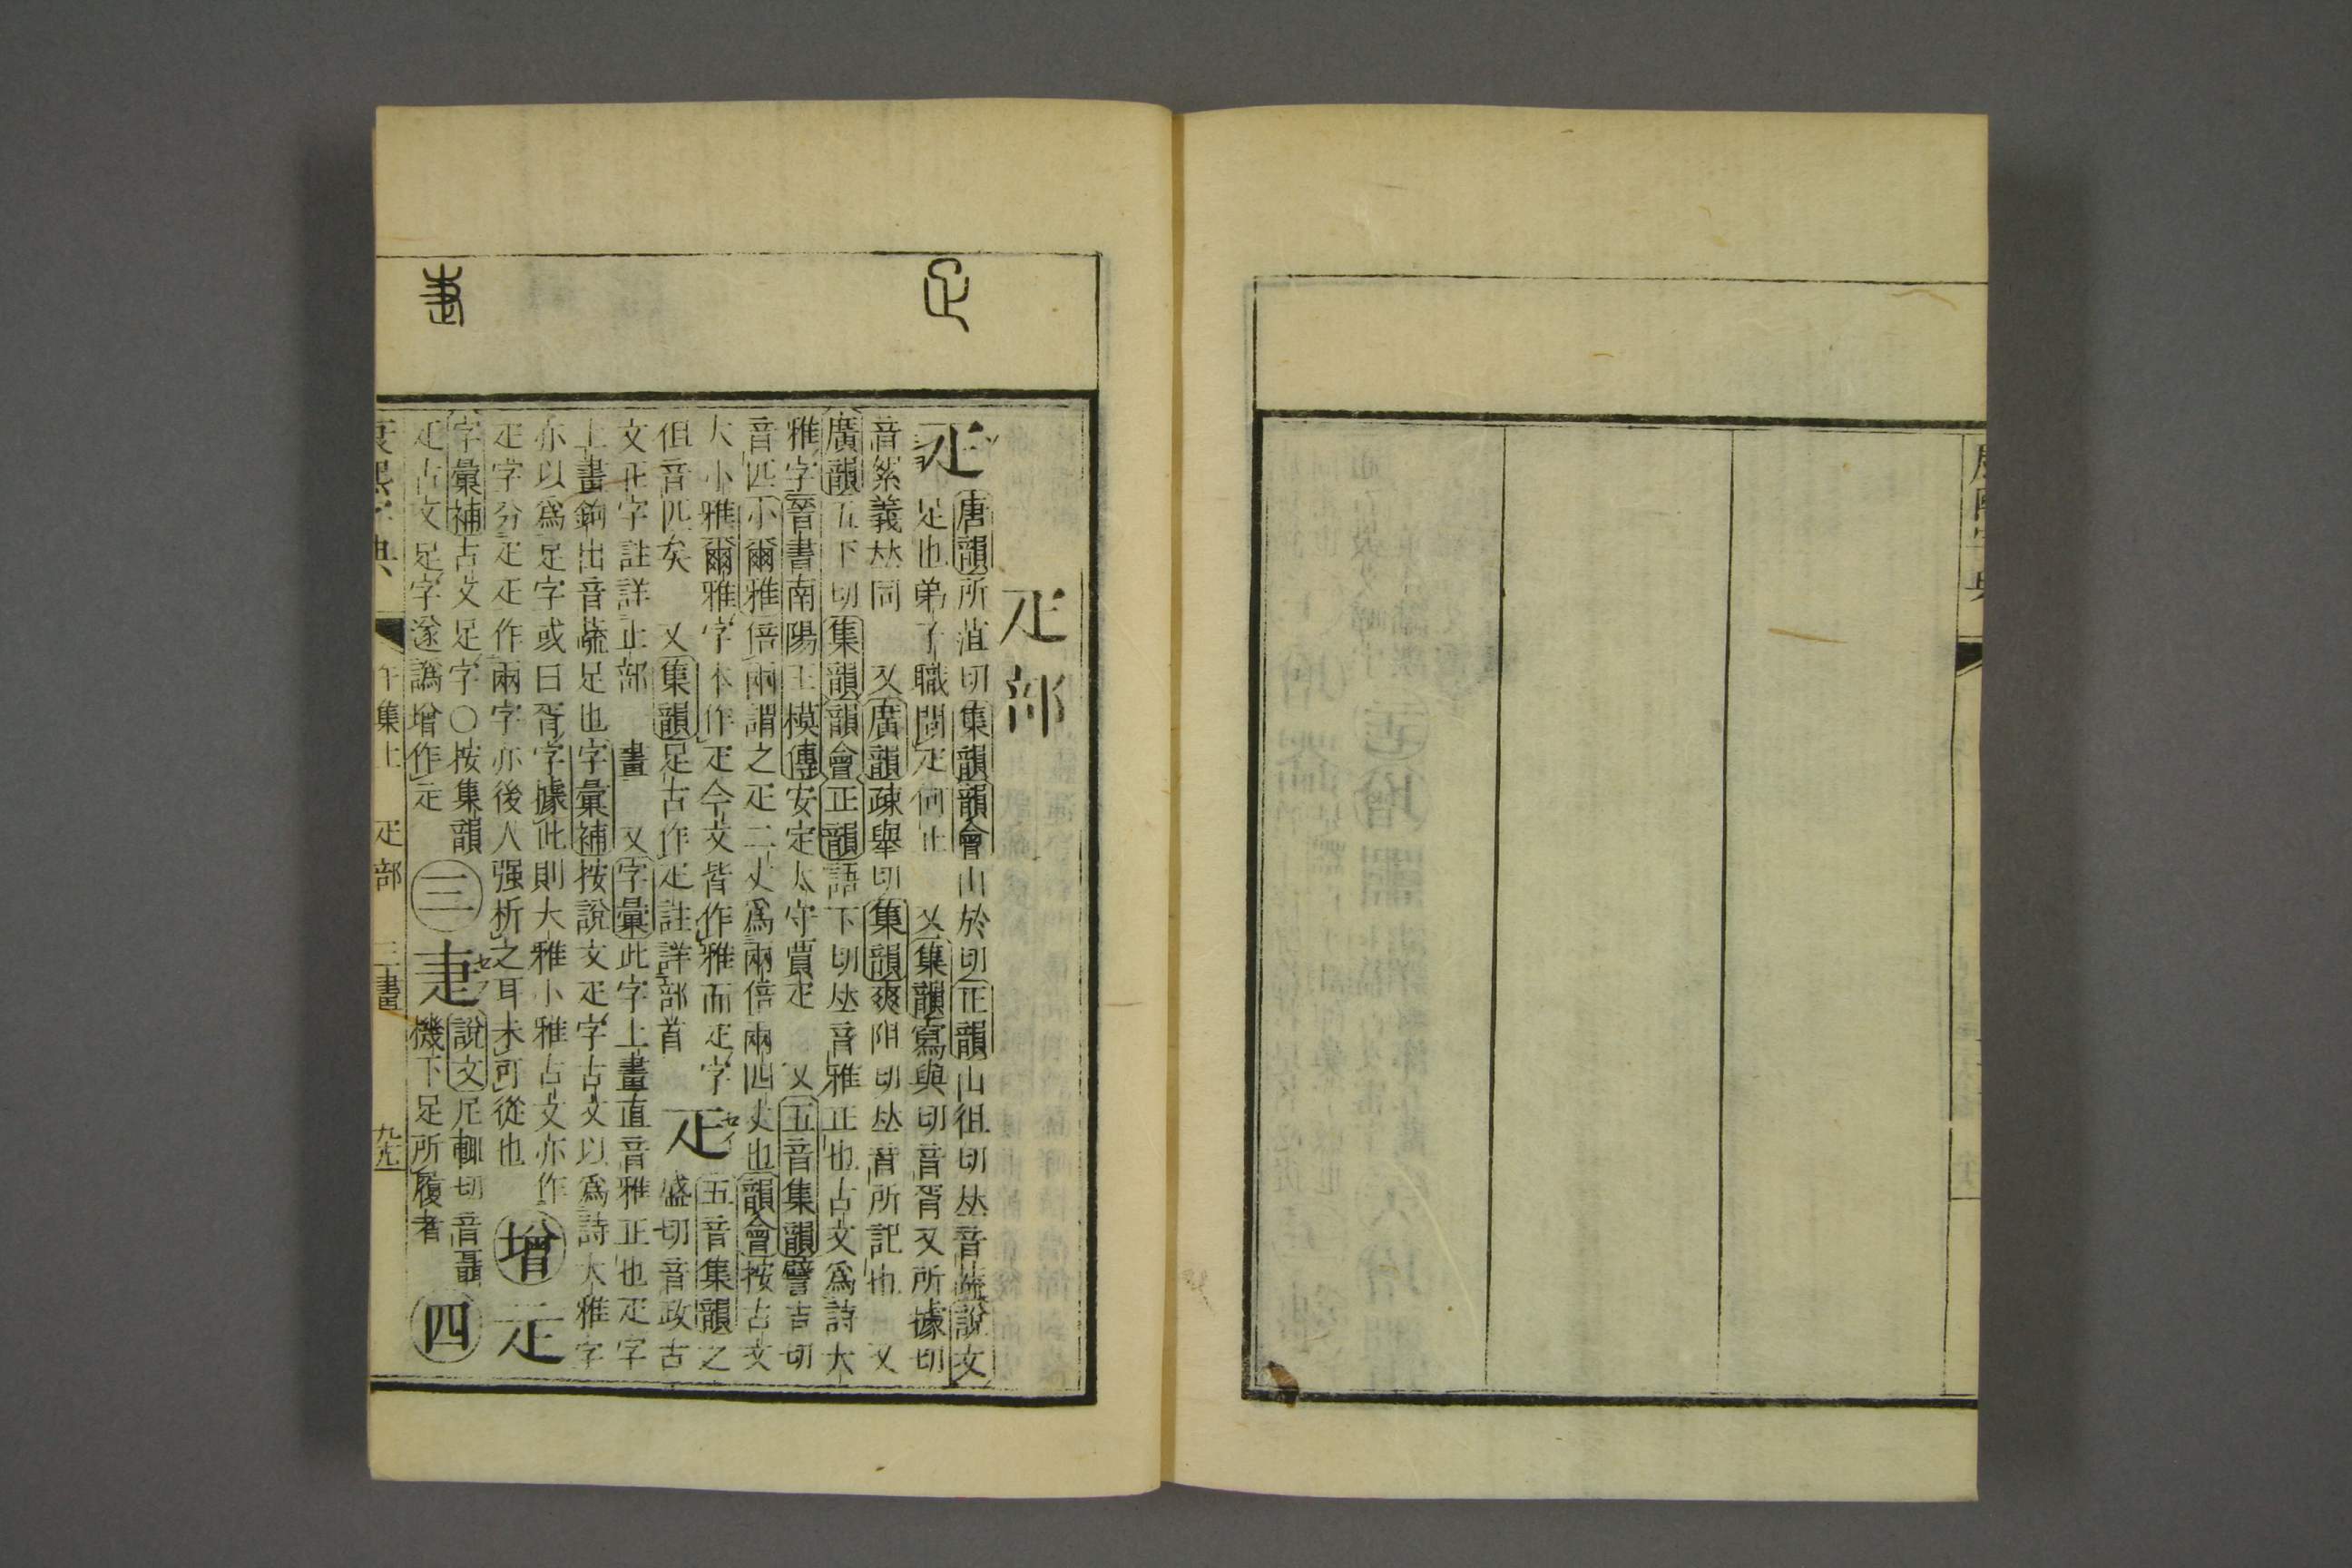 疋部
疋
唐韻所葅切集韻韻會山於切正韻山徂切𠀤音蔬說文
足也弟子職問疋何止 又集韻寫與切音胥又所據切
音絮義𠀤同 又廣韻疎舉切集韻爽阻切𠀤音所記也 又
廣韻五下切集韻韻會正韻語下切𠀤音雅正也古文爲詩大
雅字晉書南陽王模傳安定太守賈疋 又五音集韻譬吉切
音匹小爾雅倍兩謂之疋二丈爲兩倍兩四丈也韻會按古文
大小雅爾雅字本作疋今文皆作雅而疋字
但音匹矣 又集韻足古作疋註詳部首
𤴓
五音集韻之
盛切音政古
文正字註詳止部 畫 又字彙此字上畫直音雅正也疋字
上畫鉤出音蔬足也字彙補按說文疋字古文以爲詩大雅字
亦以爲足字或曰胥字據此則大雅小雅古文亦作
疋字分疋疋作兩字亦後人强析之耳未可從也
增
𤴕
字彙補古文足字○按集韻
疋古文足字遂譌增作𤴕
三
疌
說文尼輒切音聶
機下足所履者
四
康熙字典 午集上 疋部 三畫